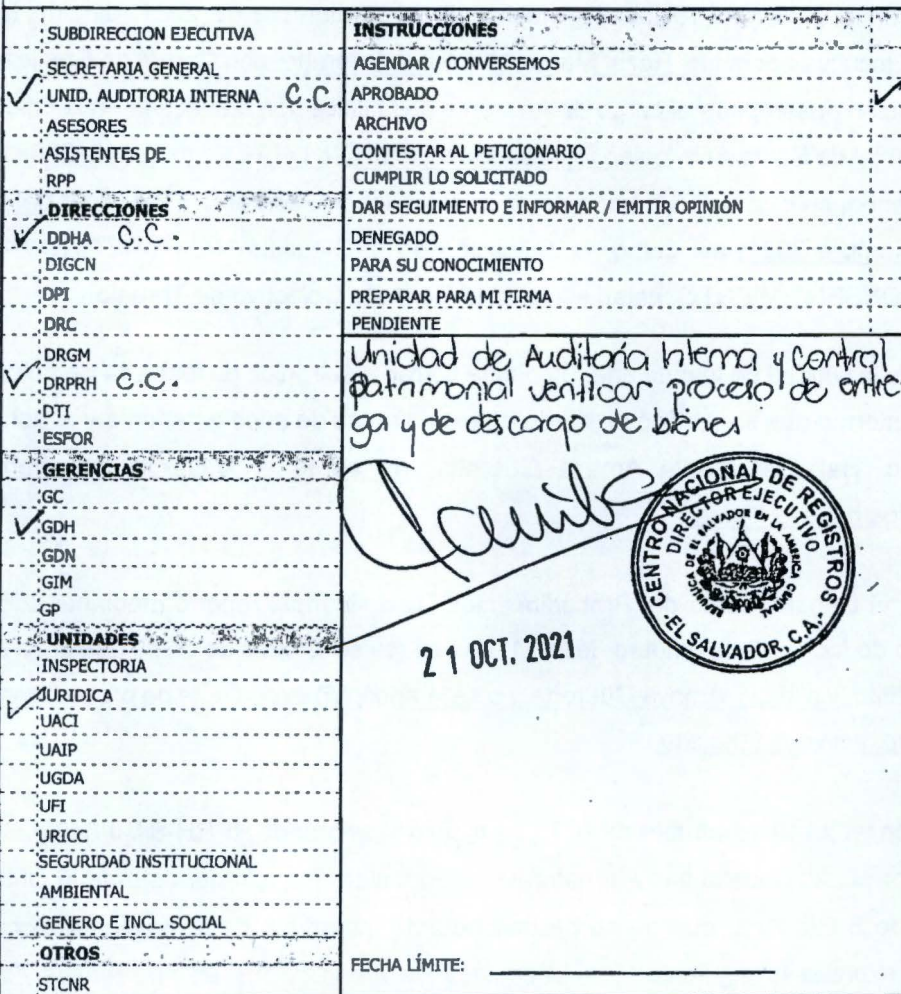 SUBDIRECCION EJECUTIVA
SECRETARIA GENERAL
✓ UNID. AUDITORIA INTERNA C.C.
ASESORES
ASISTENTES DE
RPP
DIRECCIONES
✓ DDHA C.C.
DIGCN
DPI
DRC
DRGM
✓ DRPRH C.C.
DTI
ESFOR
GERENCIAS
GC
✓ GDH
GDN
GIM
GP
UNIDADES
INSPECTORIA
✓ JURIDICA
UACI
UAIP
UGDA
UFI
URICC
SEGURIDAD INSTITUCIONAL
AMBIENTAL
GENERO E INCL. SOCIAL
OTROS
STCNR
INSTRUCCIONES
AGENDAR / CONVERSEMOS
APROBADO ✓
ARCHIVO
CONTESTAR AL PETICIONARIO
CUMPLIR LO SOLICITADO
DAR SEGUIMIENTO E INFORMAR / EMITIR OPINIÓN
DENEGADO
PARA SU CONOCIMIENTO
PREPARAR PARA MI FIRMA
PENDIENTE
Unidad de Auditoría Interna y Control
patrimonial verificar proceso de entre
ga y de descargo de bienes
CENTRO NACIONAL DE REGISTROS
DIRECTOR EJECUTIVO
REPUBLICA DE EL SALVADOR EN LA AMERICA CENTRAL
EL SALVADOR, C.A.
21 OCT. 2021
FECHA LÍMITE: